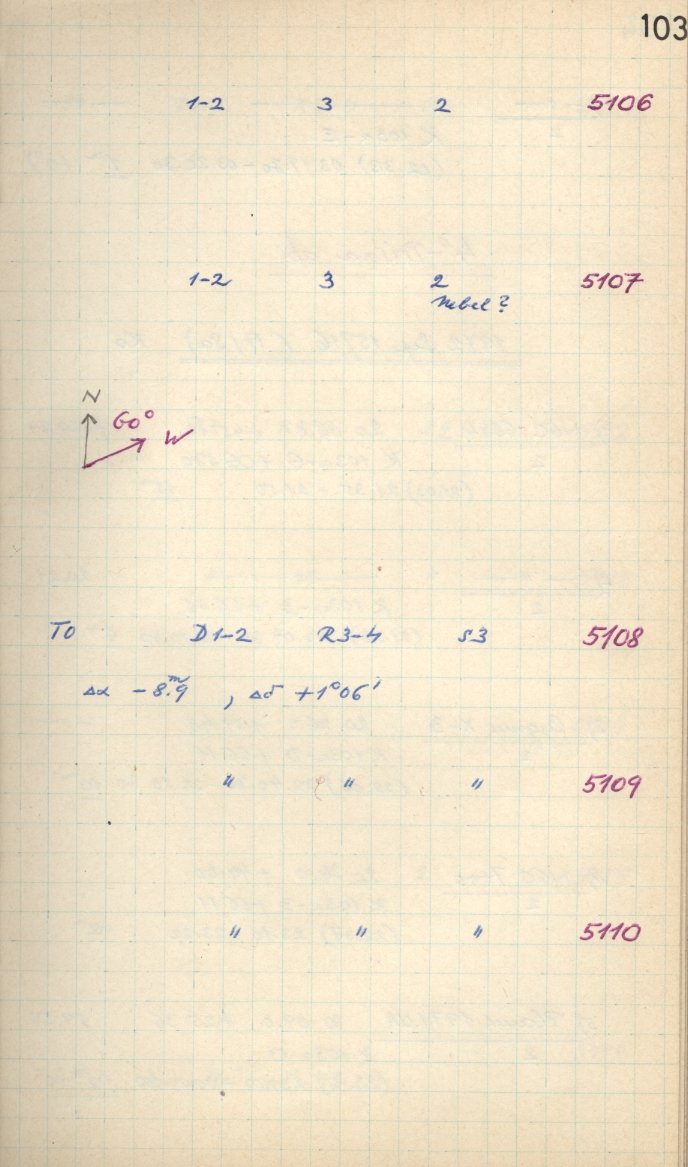 103
1-2 3 2 5106
1-2 3 2 5107
Nebel?
N
60°
W
To D1-2 R3-4 S3 5108
Δα -8.ᵐ9 , Δδ +1°06'
" " " 5109
" " " 5110